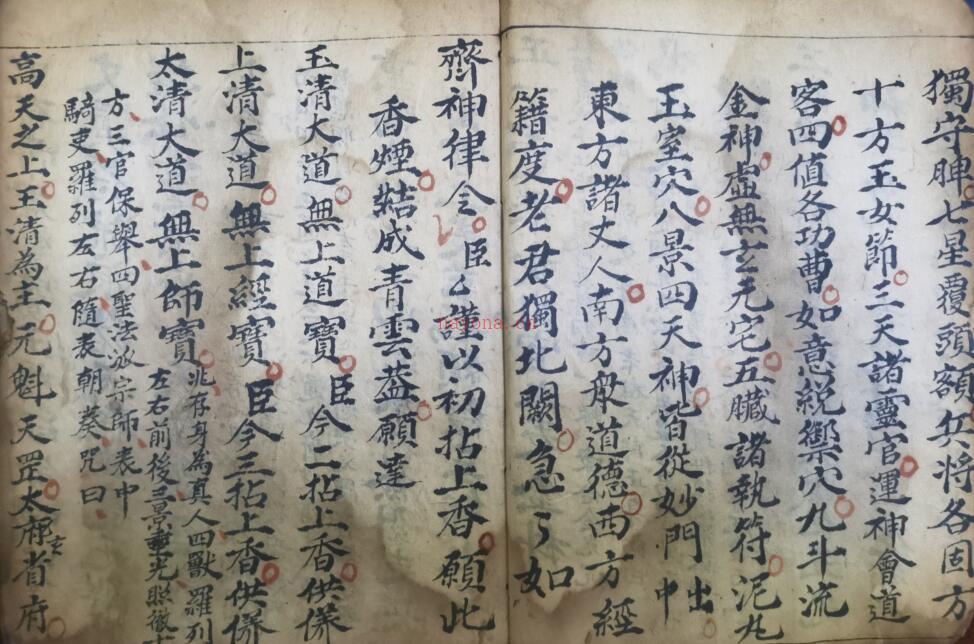 獨守脾七星覆頭額兵將各固方
十方玉女節三天諸靈官運神會道
客四值各功曹如意統禦穴九斗流
金神虛無玄元宅五臟諸執符泥丸
玉室穴八景四天神皆從妙門中出
東方諸丈人南方衆道德西方經
籍度老君獨北闕急〻如
齊神律令臣厶謹以初拈上香願此
香煙結成青雲蓋願達
玉清大道無上道寶臣今二拈上香供養
上清大道無上經寶臣今三拈上香供養
太清大道無上師寶兆存身為真人四獸羅列
左右前後三景垂光照徹十
方三官保舉四聖法派宗師表申
騎吏羅列左右隨表朝奏咒曰
高天之上玉清為主元魁天罡太玄都省府
nayona.cn